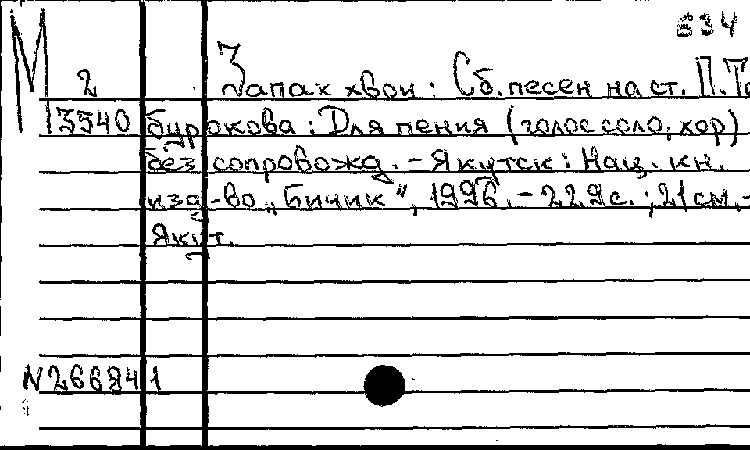 634
М Запах хвои: Сб. песен на ст. П. То
2
13340 бурокова: Для пения (голос соло, хор)
без сопровожд. - Якутск: Нац. кн.
изд-во „Бичик“, 1996. - 229с.; 21см. -
Якут.
N266841